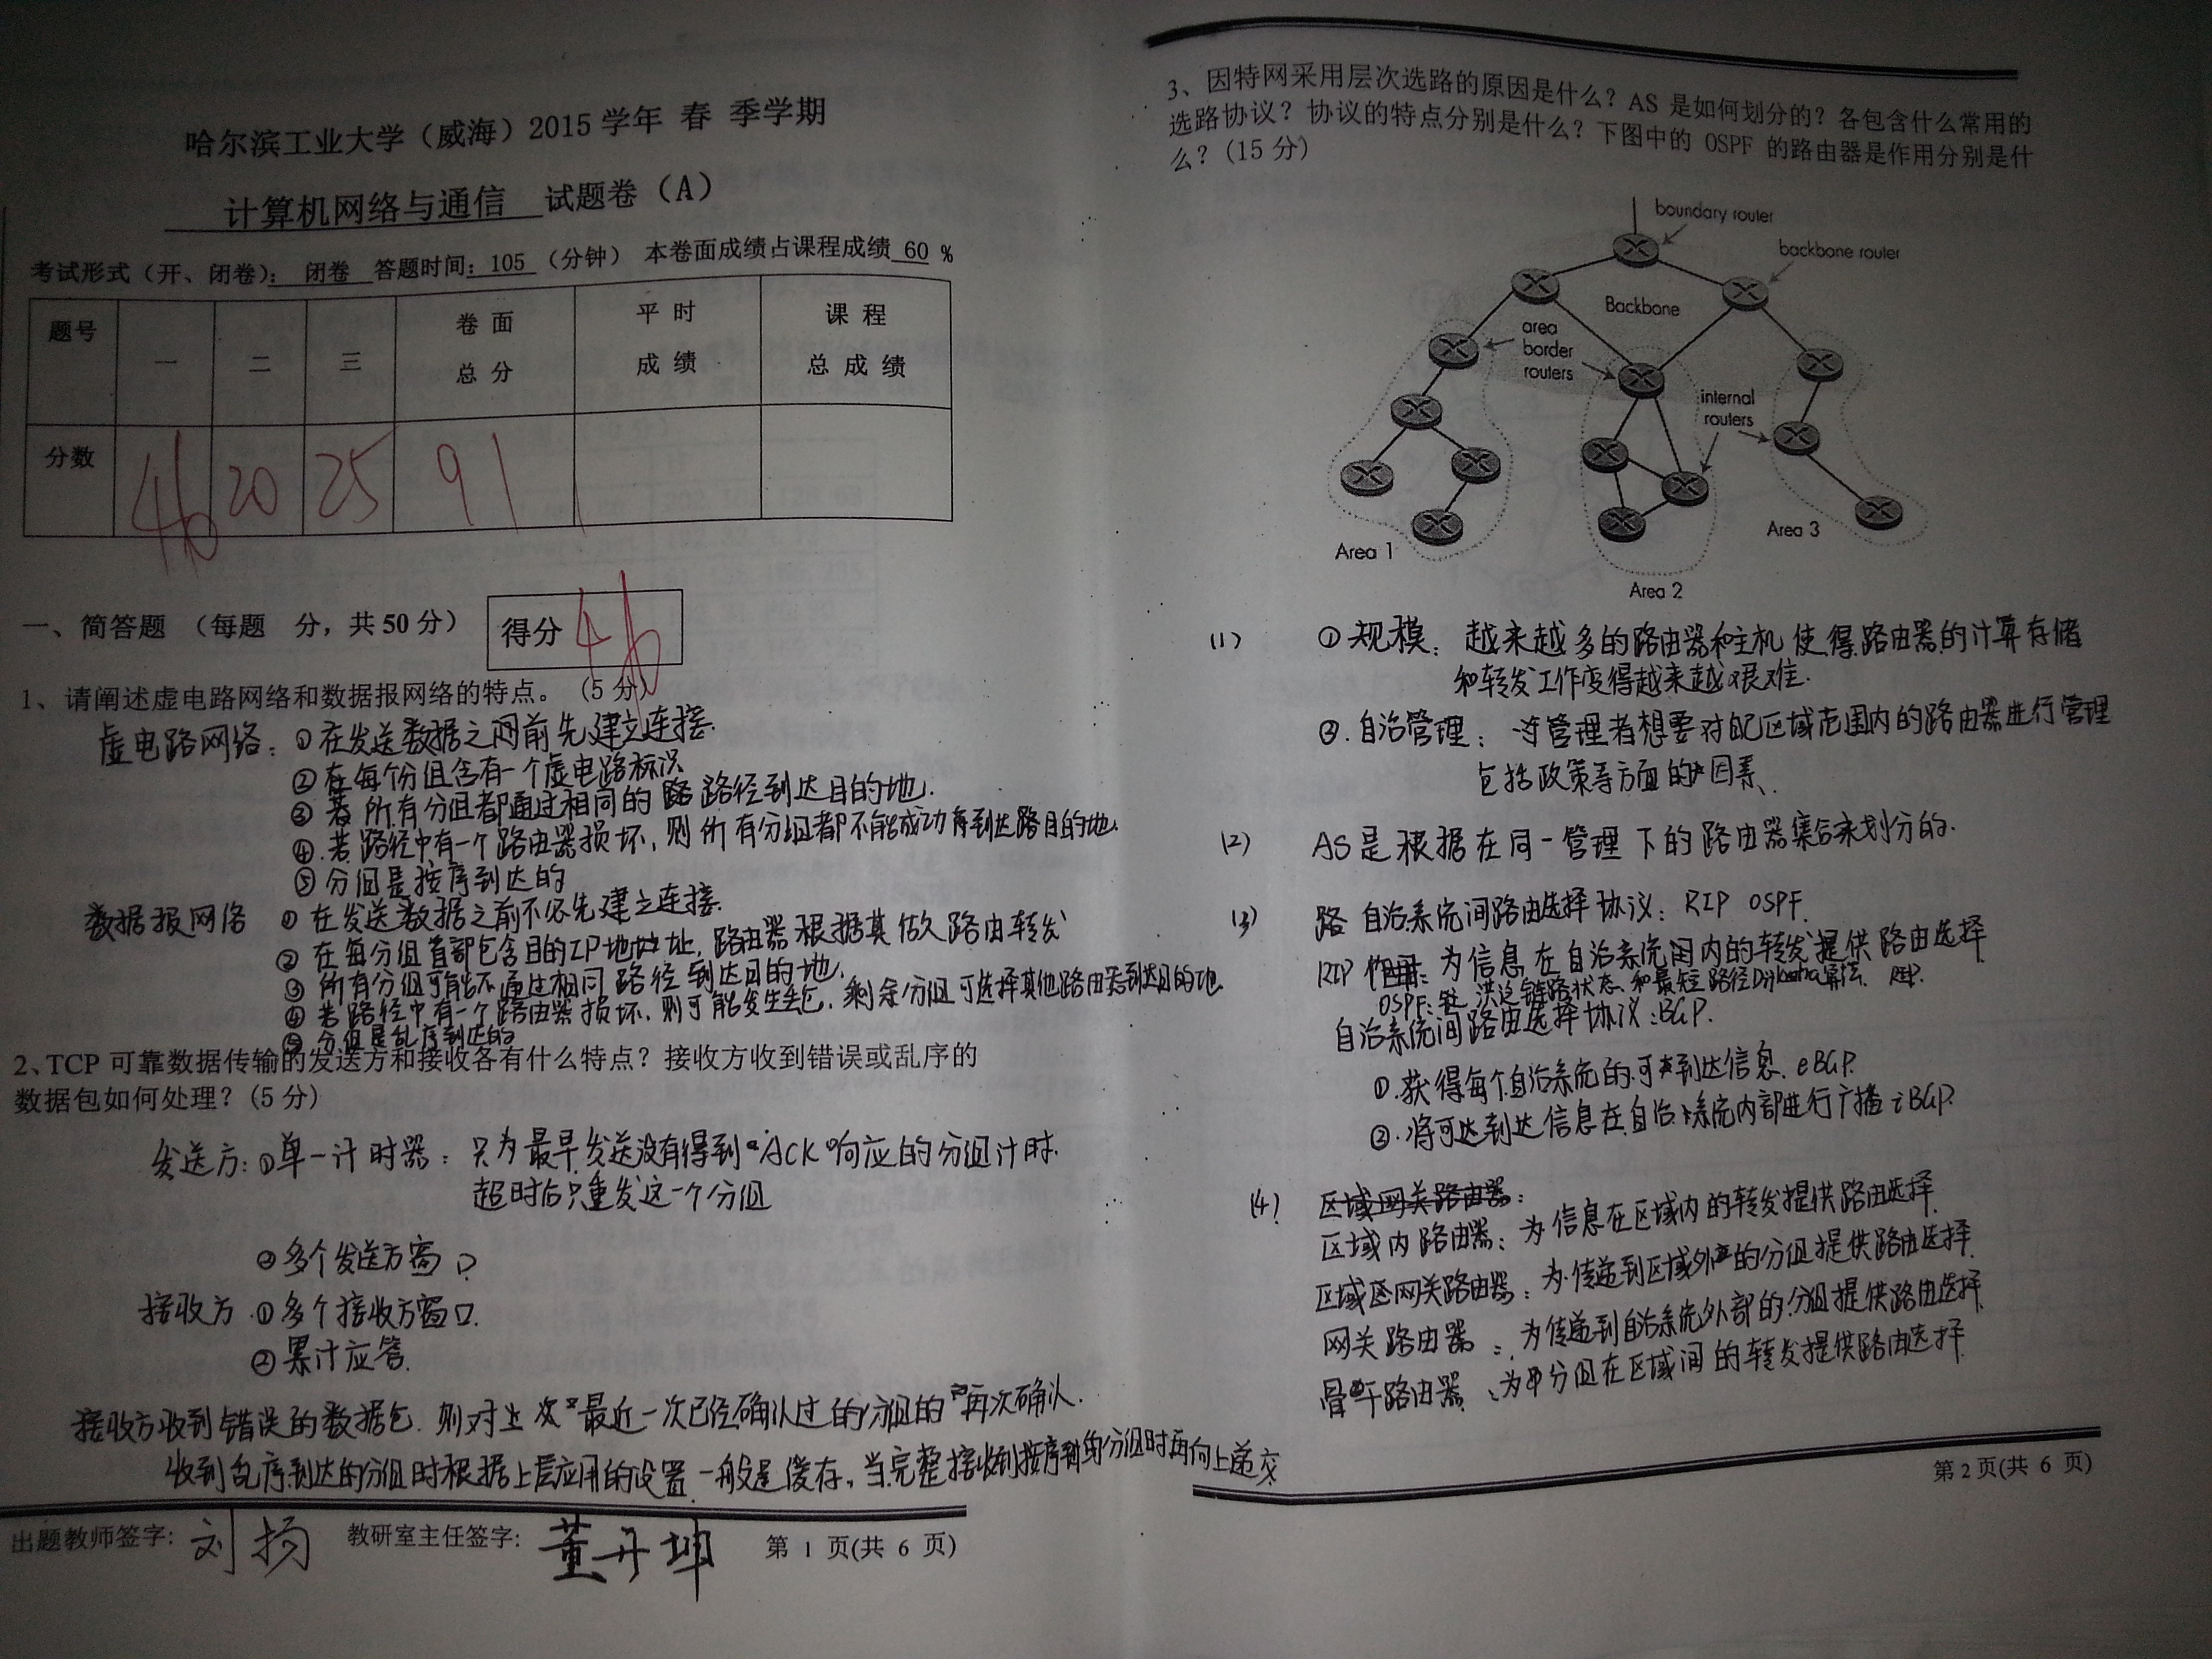 哈尔滨工业大学（威海）2015 学年 春 季学期
计算机网络与通信 试题卷（A）
考试形式（开、闭卷）： 闭卷 答题时间：105（分钟） 本卷面成绩占课程成绩 60 %
题号 一 二 三 卷面总分 平时成绩 课程总成绩
分数 46 20 25 91
一、简答题 （每题 分，共 50 分） 得分 46
1、请阐述虚电路网络和数据报网络的特点。（5 分）
虚电路网络：①在发送数据之间前先建立连接.
②在每个分组含有一个虚电路标识
③若所有分组都通过相同的 路径到达目的地.
④.若路径中有一个路由器损坏，则所有分组都不能成功到达目的地.
⑤分组是按序到达的
数据报网络 ①在发送数据之前不必先建立连接.
②在每分组首部包含目的IP地址，路由器根据其做路由转发
③所有分组可能不通过相同路径到达目的地.
④若路径中有一个路由器损坏，则可能发生丢包，剩余分组可选择其他路由器到达目的地
⑤分组是乱序到达的
2、TCP 可靠数据传输的发送方和接收各有什么特点？接收方收到错误或乱序的
数据包如何处理？（5 分）
发送方：①单一计时器：只为最早发送没有得到ACK响应的分组计时.
超时后只重发这一个分组
②多个发送方窗口
接收方.①多个接收方窗口.
②累计应答.
接收方收到错误的数据包.则对最近一次已经确认过的分组的再次确认.
收到乱序到达的分组时根据上层应用的设置一般是缓存，当完整接收到按序到的分组时再向上递交
出题教师签字：刘扬 教研室主任签字：董开坤 第 1 页(共 6 页)
3、因特网采用层次选路的原因是什么？AS 是如何划分的？各包含什么常用的
选路协议？协议的特点分别是什么？下图中的 OSPF 的路由器是作用分别是什
么？(15 分)
boundary router
backbone router
Backbone
area
border
routers
internal
routers
Area 1
Area 2
Area 3
(1) ①规模：越来越多的路由器和主机使得路由器的计算存储
和转发工作变得越来越艰难.
②.自治管理：管理者想要对区域范围内的路由器进行管理
包括政策等方面的因素.
(2) AS是根据在同一管理下的路由器集合来划分的.
(3) 路 自治系统间路由选择协议：RIP OSPF.
RIP 作用：为信息在自治系统内的转发提供路由选择
OSPF：洪泛链路状态和最短路径Dijkstra算法.
自治系统间路由选择协议：BGP.
①.获得每个自治系统的可到达信息.eBGP.
②.将可达到达信息在自治系统内部进行广播iBGP.
(4) 区域网关路由器：
区域内路由器：为信息在区域内的转发提供路由选择.
区域网关路由器：为传递到区域外的分组提供路由选择.
网关路由器：为传递到自治系统外部的分组提供路由选择.
骨干路由器、为分组在区域间的转发提供路由选择.
第 2 页(共 6 页)